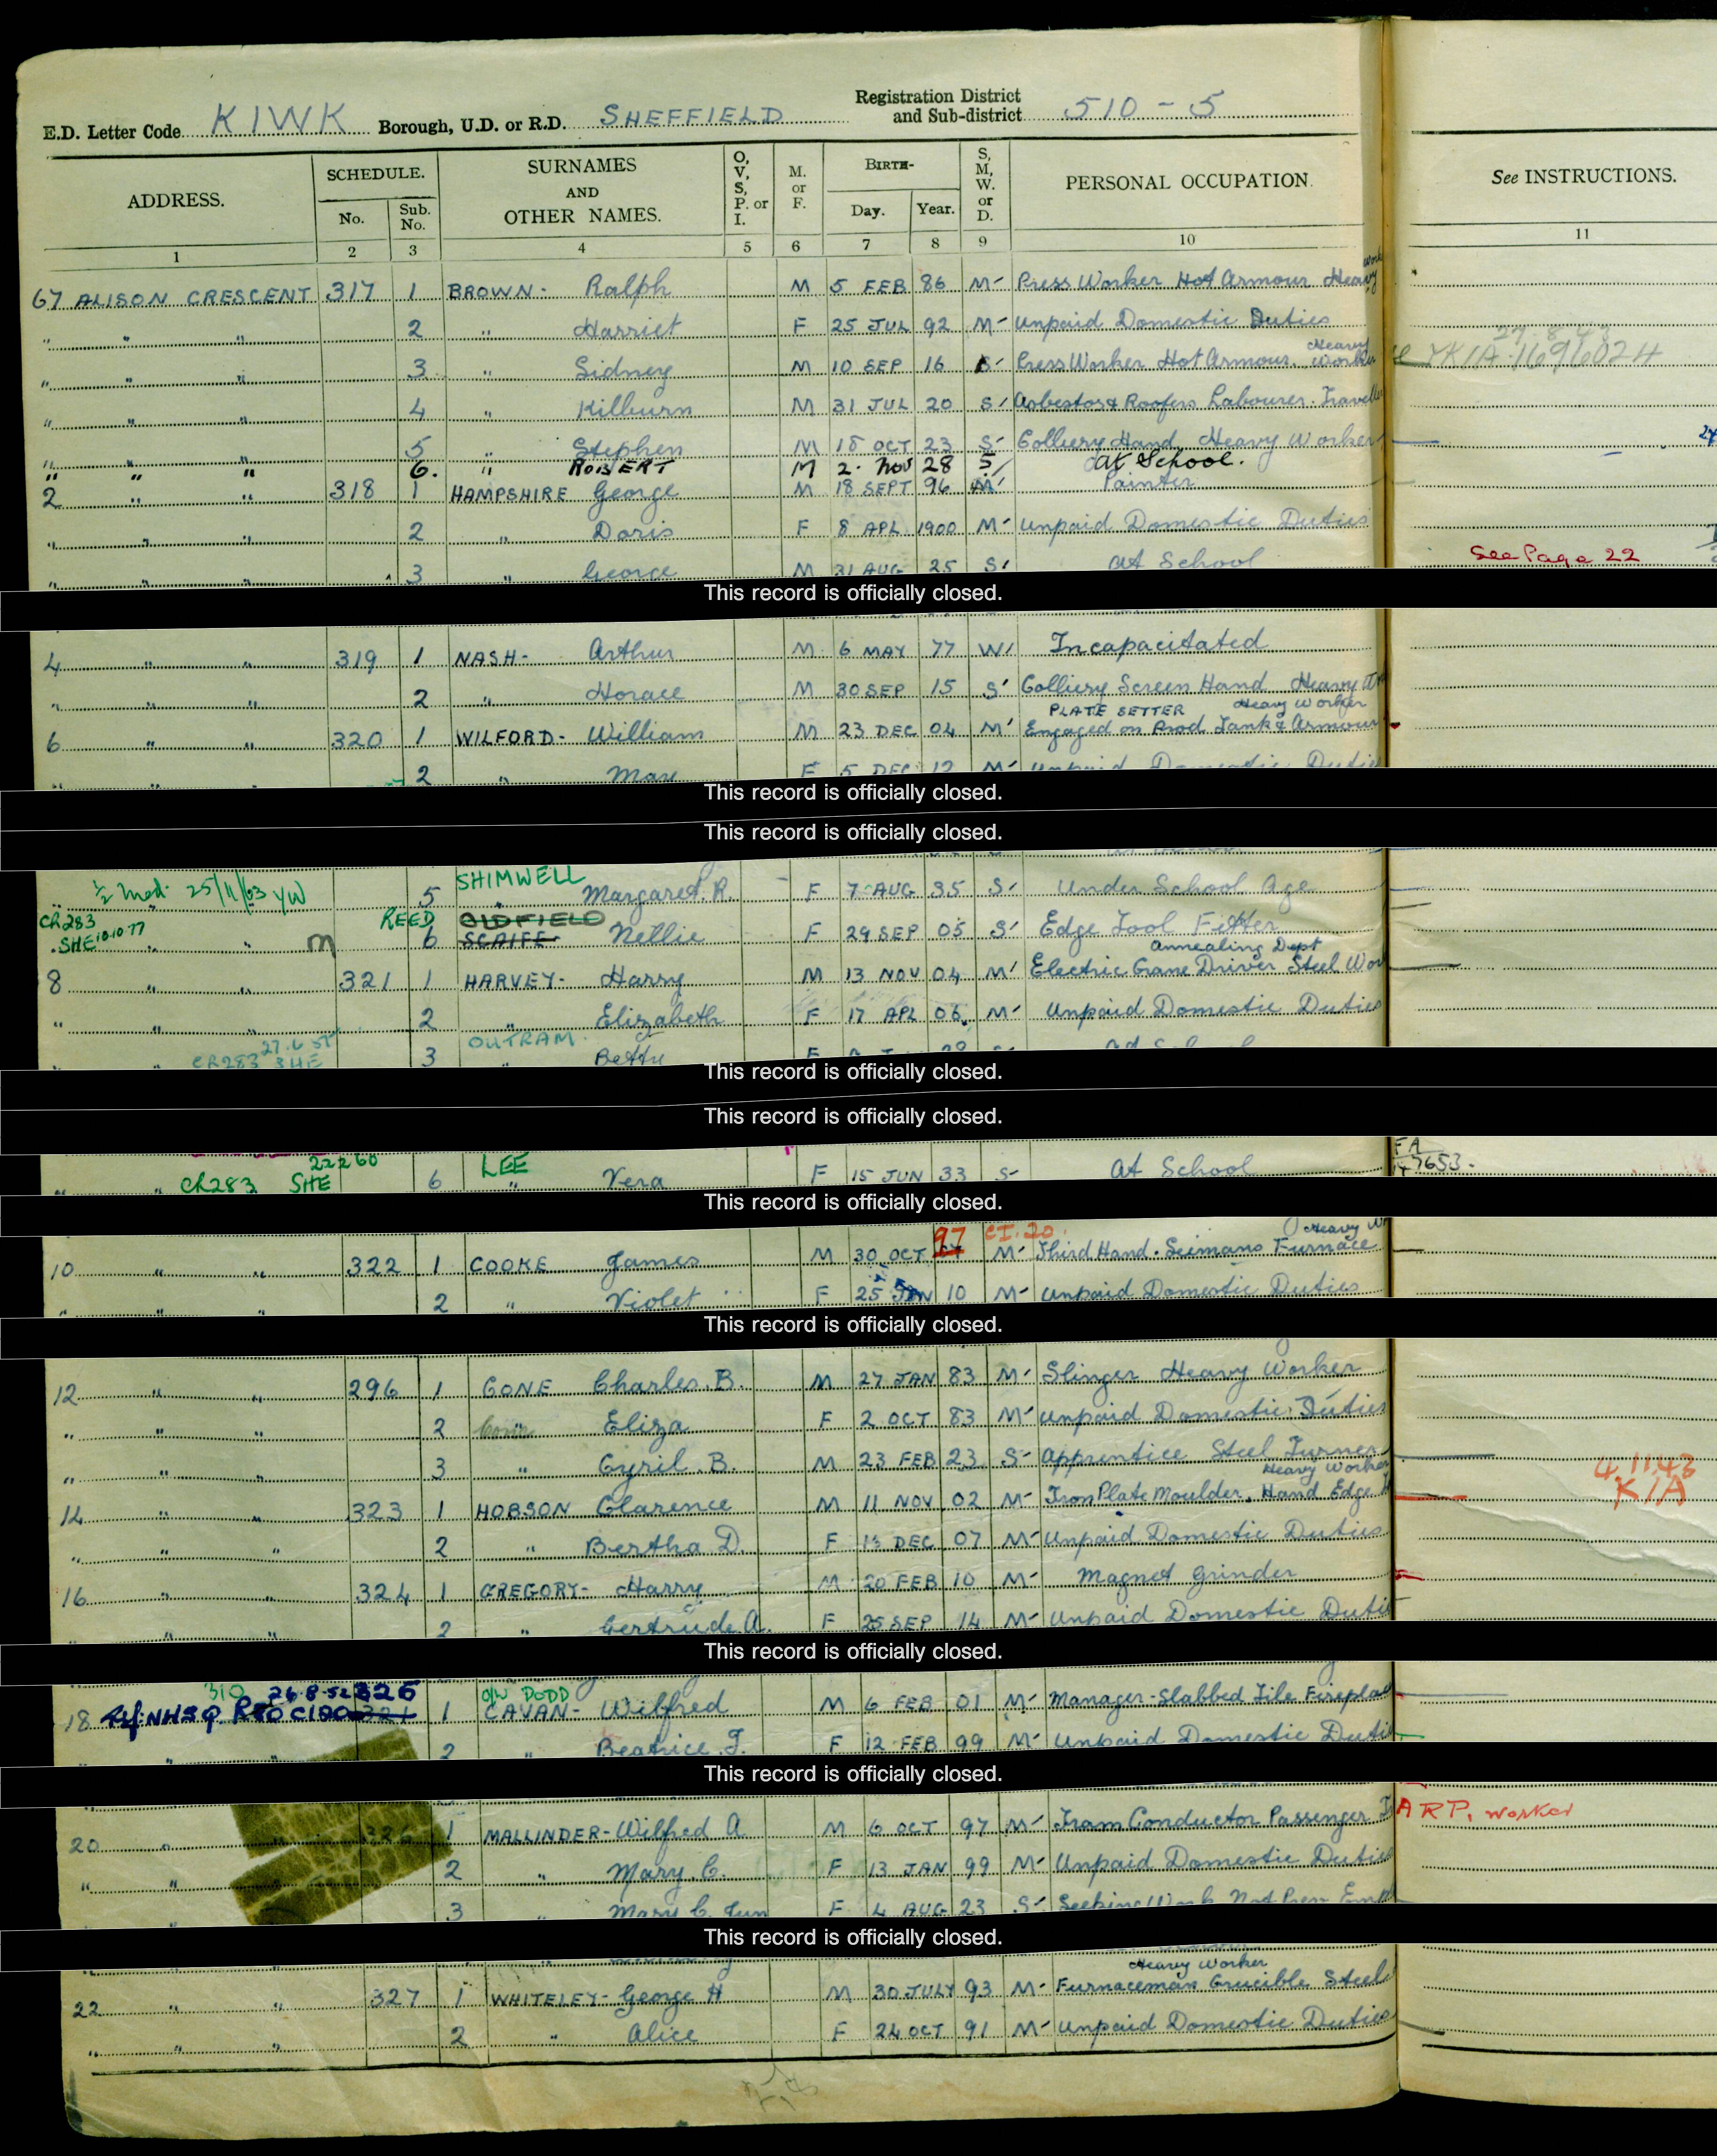 E.D. Letter Code KIWK Borough, U.D. or R.D. SHEFFIELD Registration District and Sub-district 510-5
ADDRESS. SCHEDULE. No. Sub. No. SURNAMES AND OTHER NAMES. O, V, S, P. or I. M. or F. BIRTH- Day. Year. S, M, W. or D. PERSONAL OCCUPATION. See INSTRUCTIONS.
1 2 3 4 5 6 7 8 9 10 11
67 ALISON CRESCENT 317 1 BROWN- Ralph M 5 FEB 86 M Press Worker Hot Armour Heavy work
" " " 2 " Harriet F 25 JUL 92 M Unpaid Domestic Duties
27.8.43
" " " 3 " Sidney M 10 SEP 16 S Press Worker Hot Armour. Heavy Worker YKIA 1696024
" " " 4 " Kilburn M 31 JUL 20 S Asbestos & Roofers Labourer.
" " " 5 " Stephen M 18 OCT 23 S Colliery Hand Heavy Worker
" " " 6. " ROBERT M 2. Nov 28 S at School.
2 " " 318 1 HAMPSHIRE George M 18 SEPT 96 M Painter
" " " 2 " Doris F 8 APL 1900 M Unpaid Domestic Duties
" " " 3 " George M 31 AUG 25 S At School See Page 22
This record is officially closed.
4 " " 319 1 NASH- Arthur M 6 MAY 77 W Incapacitated
" " " 2 " Horace M 30 SEP 15 S Colliery Screen Hand Heavy
PLATE SETTER Heavy Worker
6 " " 320 1 WILFORD- William M 23 DEC 04 M Engaged on Prod. Tank & Armour
" " " 2 " May F 5 DEC 12 M Unpaid Domestic Duties
This record is officially closed.
This record is officially closed.
SHIMWELL
25/11/53 YW 5 " Margaret. R. F 7 AUG 35 S Under School Age
CR283 REED OLDFIELD
SHE 10 10 77 M 6 SCAIFE Nellie F 29 SEP 05 S Edge Tool Fitter
Annealing Dept
8 " " 321 1 HARVEY- Harry M 13 NOV 04 M Electric Crane Driver Steel
" " " 2 " Elizabeth F 17 APL 06 M Unpaid Domestic Duties
OUTRAM
CR283 SHE 3 " Betty F
This record is officially closed.
This record is officially closed.
22260 LEE FA
" " CR283 SHE 6 " Vera F 15 JUN 33 S At School 7653.
This record is officially closed.
97 CI.20. Heavy
10 " " 322 1 COOKE James M 30 OCT M Third Hand. Seimans Furnace
" " " 2 " Violet F 25 JAN 10 M Unpaid Domestic Duties
This record is officially closed.
12 " " 296 1 GONE Charles. B. M 27 JAN 83 M Slinger Heavy Worker
" " " 2 " Eliza F 2 OCT 83 M Unpaid Domestic Duties
" " " 3 " Cyril. B. M 23 FEB 23 S Apprentice Steel Turner 4.11.43
Heavy Worker K/A
14 " " 323 1 HOBSON Clarence M 11 NOV 02 M Iron Plate Moulder. Hand Edge
" " 2 " Bertha D. F 13 DEC 07 M Unpaid Domestic Duties
16 " " 324 1 GREGORY- Harry M 20 FEB 10 M Magnet Grinder
" " " 2 " Gertrude. A. F 25 SEP 14 M Unpaid Domestic Duties
This record is officially closed.
310 26.8.52 O/W DODD
18 Ref: NHS 9 325 1 CAVAN- Wilfred M 6 FEB 01 M Manager-Slabbed Tile Fireplace
" 2 " Beatrice. F 12 FEB 99 M Unpaid Domestic Duties
This record is officially closed.
20 " " 326 1 MALLINDER- Wilfred A M 6 OCT 97 M Tram Conductor Passenger ARP. worker
" " 2 " Mary. C. F 13 JAN 99 M Unpaid Domestic Duties
3 " Mary C. Jun F 4 AUG 23 S Seeking Work
This record is officially closed.
Heavy Worker
22 " " 327 1 WHITELEY- George H M 30 JULY 93 M Furnaceman Crucible Steel
" " " 2 " Alice F 24 OCT 91 M Unpaid Domestic Duties